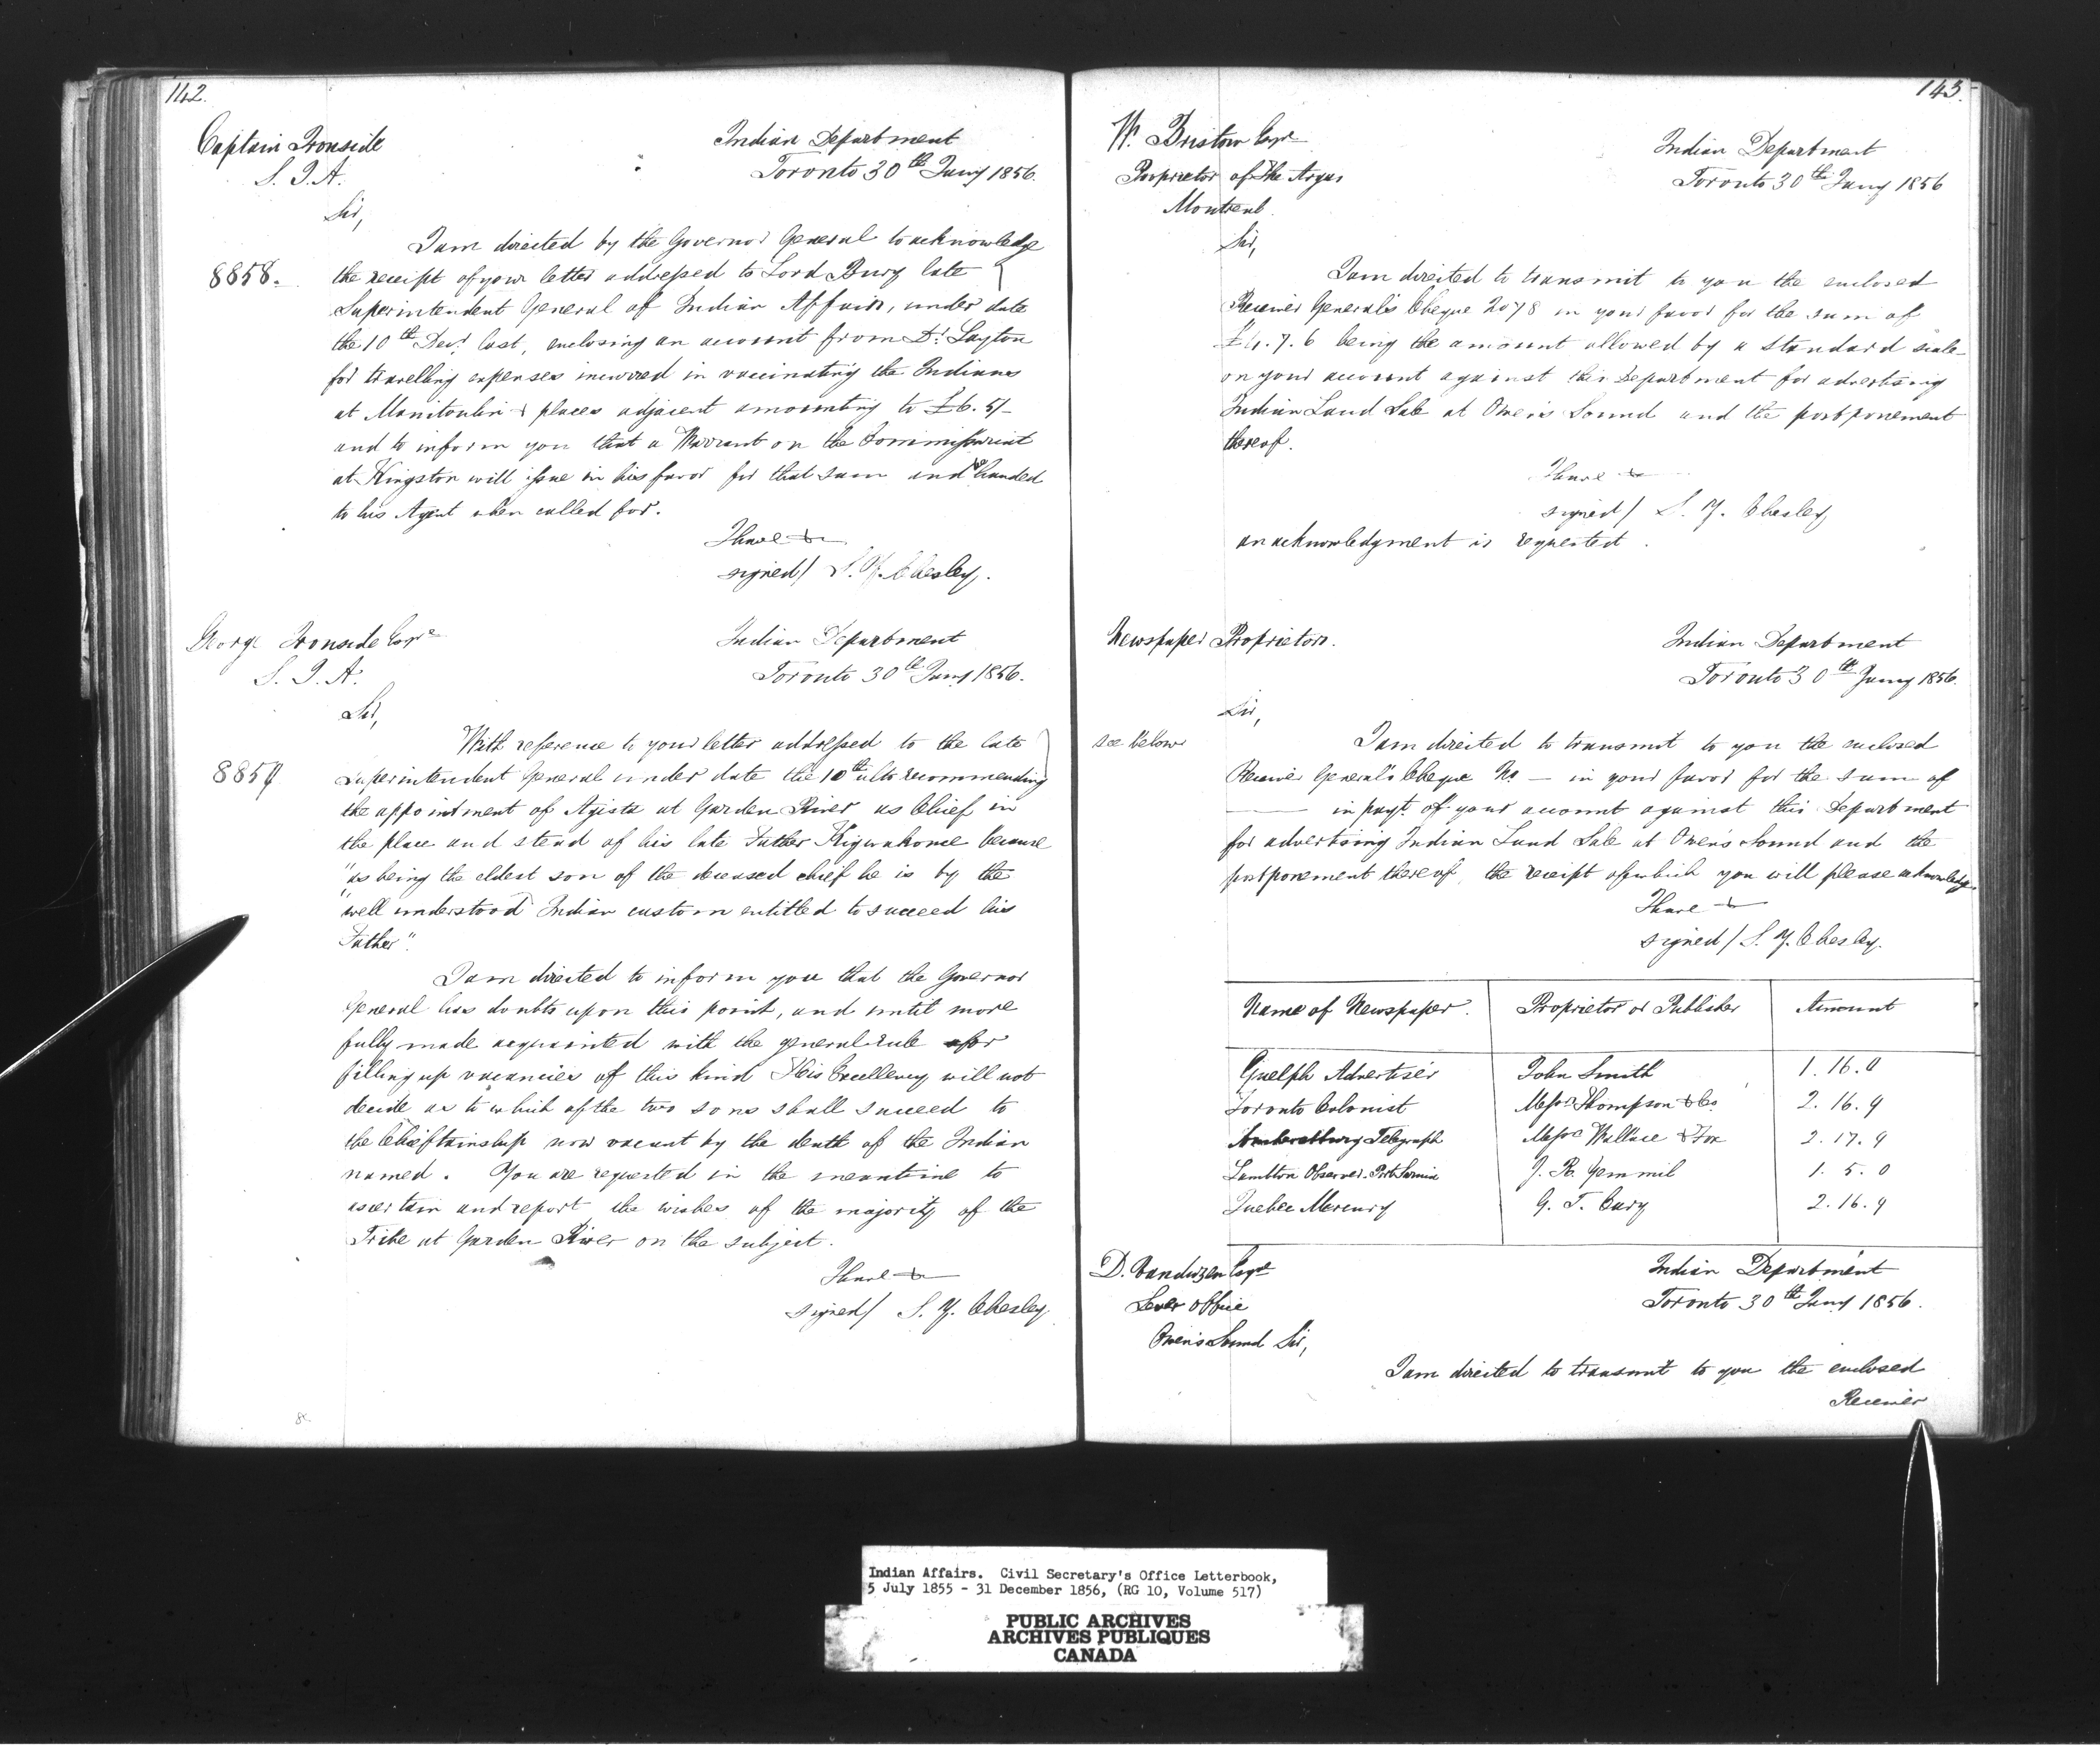 142.
Captain Ironside
S. I. A.
Indian Department
Toronto 30th Jany 1856.
Sir,
I am directed by the Governor General to acknowledge
8858.
the receipt of your letter addressed to Lord Bury late
Superintendent General of Indian Affairs, under date
the 10th Decr last, enclosing an account from Dr Layton
for travelling expenses incurred in vaccinating the Indians
at Manitoulin & places adjacent amounting to £6. 5/-
and to inform you that a Warrant on the Commissariat
at Kingston will issue in his favor for that sum and be handed
to his Agent when called for.
I have &c
signed/ S. Y. Chesley.
George Ironside Esqre
S. I. A.
Indian Department
Toronto 30th Jany 1856.
Sir,
With reference to your letter addressed to the late
8859
Superintendent General under date the 10th ulto recommending
the appointment of Agista at Garden River as Chief in
the place and stead of his late Father Kigwakome because
"as being the eldest son of the deceased chief he is by the
"well understood Indian custom entitled to succeed his
Father".
I am directed to inform you that the Governor
General has doubts upon this point, and until more
fully made acquainted with the general rule for
filling up vacancies of this kind His Excellency will not
decide as to which of the two sons shall succeed to
the Chieftainship now vacant by the death of the Indian
named. You are requested in the meantime to
ascertain and report the wishes of the majority of the
Tribe at Garden River on the subject.
I have &c
signed/ S. Y. Chesley
143.
W. Bristow Esqre
Proprietor of The Argus
Montreal
Indian Department
Toronto 30th Jany 1856
Sir,
I am directed to transmit to you the enclosed
Receiver General's Cheque 2078 in your favor for the sum of
£4. 7. 6 being the amount allowed by a standard scale
on your account against this Department for advertising
Indian Land Sale at Owen's Sound and the postponement
thereof.
I have &c
signed/ S. Y. Chesley
an acknowledgment is requested.
Newspaper Proprietors.
Indian Department
Toronto 30th Jany 1856.
Sir,
see below
I am directed to transmit to you the enclosed
Receiver General's Cheque No — in your favor for the sum of
—— in payt. of your account against this Department
for advertising Indian Land Sale at Owen's Sound and the
postponement thereof, the receipt of which you will please acknowledge.
I have &c
signed/ S. Y. Chesley.
Name of Newspaper. Proprietor or Publisher Amount
Guelph Advertiser John Smith 1. 16. 0
Toronto Colonist Messrs Thompson & Co. 2. 16. 9
Amherstburg Telegraph Messrs Wallace & Fox 2. 17. 9
Lambton Observer. Port Sarnia J. R. Gemmil 1. 5. 0
Quebec Mercury G. T. Cary 2. 16. 9
D. Vandwzen Esqre
Lever office
Owen's Sound
Indian Department
Toronto 30th Jany 1856.
Sir,
I am directed to transmit to you the enclosed
Receiver
Indian Affairs. Civil Secretary's Office Letterbook,
5 July 1855 - 31 December 1856, (RG 10, Volume 517)
PUBLIC ARCHIVES
ARCHIVES PUBLIQUES
CANADA